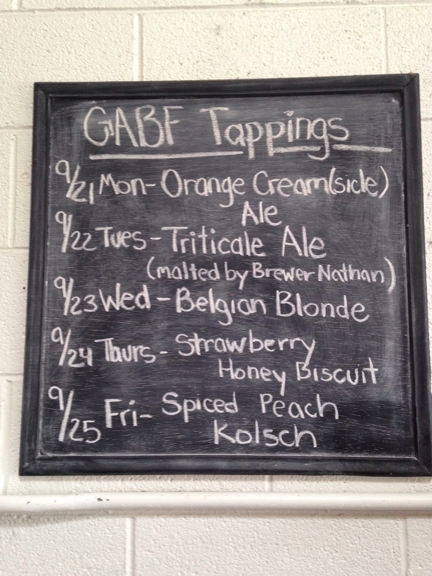 GABF Tappings
9/21 Mon- Orange Cream(sicle)
Ale
9/22 Tues - Triticale Ale
(malted by Brewer Nathan)
9/23 Wed - Belgian Blonde
9/24 Thurs - Strawberry
Honey Biscuit
9/25 Fri- Spiced Peach
Kolsch